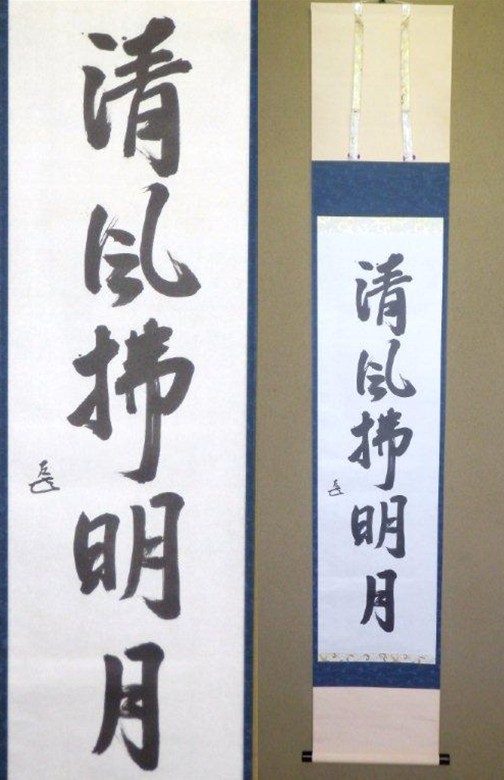 清風拂明月
清風拂明月